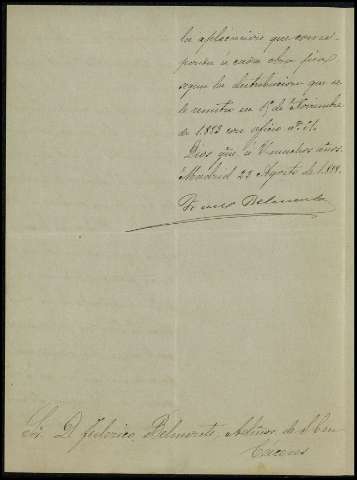 la aplicacion que corres-
ponda á cada obra pia
segun la distribucion que se
le remitio en 1º de Noviembre
de 1.883 con oficio nº 31.
Dios gũe. á V. muchos años.
Madrid 23 Agosto de 1.884.
Belmonte
Sor. D. Federico Belmonte, Admor. de
Cáceres